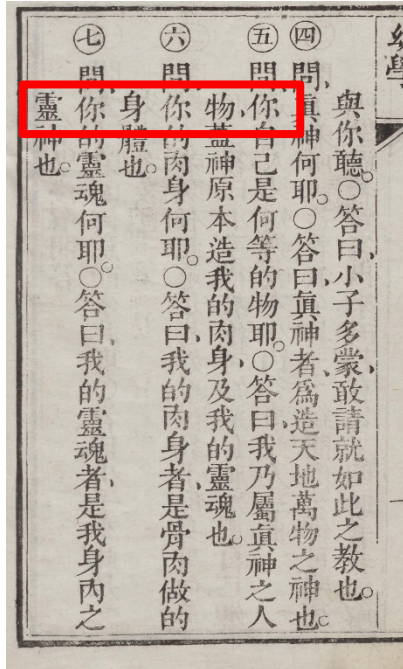 幼學
與你聽。○答曰、小子多蒙、敢請就如此之教也。
㊃問、眞神何耶○答曰眞神者爲造天地萬物之神也。
㊄問你自己是何等的物耶。○答曰我乃屬眞神之人
物、蓋神原本造我的肉身、及我的靈魂也。
㊅問、你的肉身何耶。○答曰、我的肉身者、是骨肉做的
身體也。
㊆問、你的靈魂何耶。○答曰、我的靈魂者、是我身內之
靈神也。